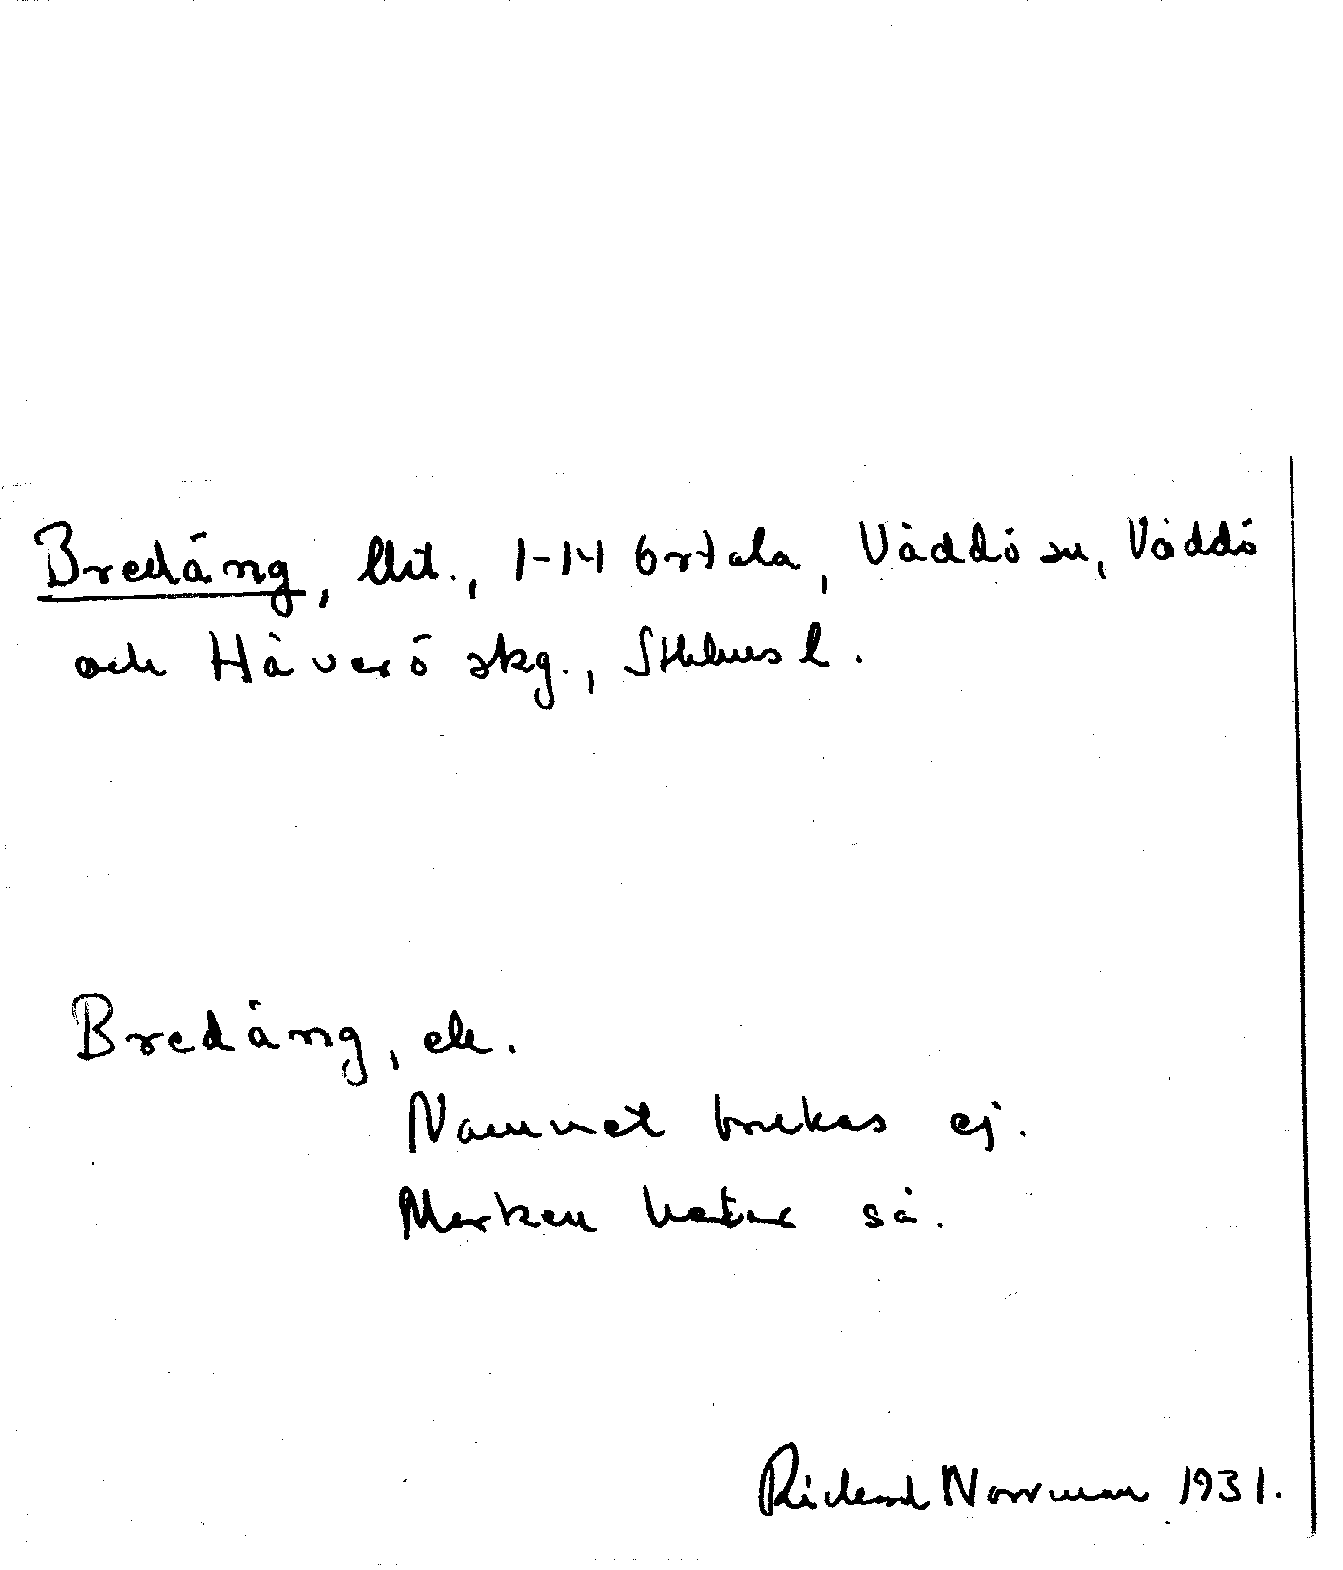 Bredäng, lht., 1-14 Ortala, Väddö sn, Väddö
och Häverö skg., Sthlms l.
Bredäng, ek.
Namnet brukas ej.
Marken hetar så.
Rickard Norrman 1931.